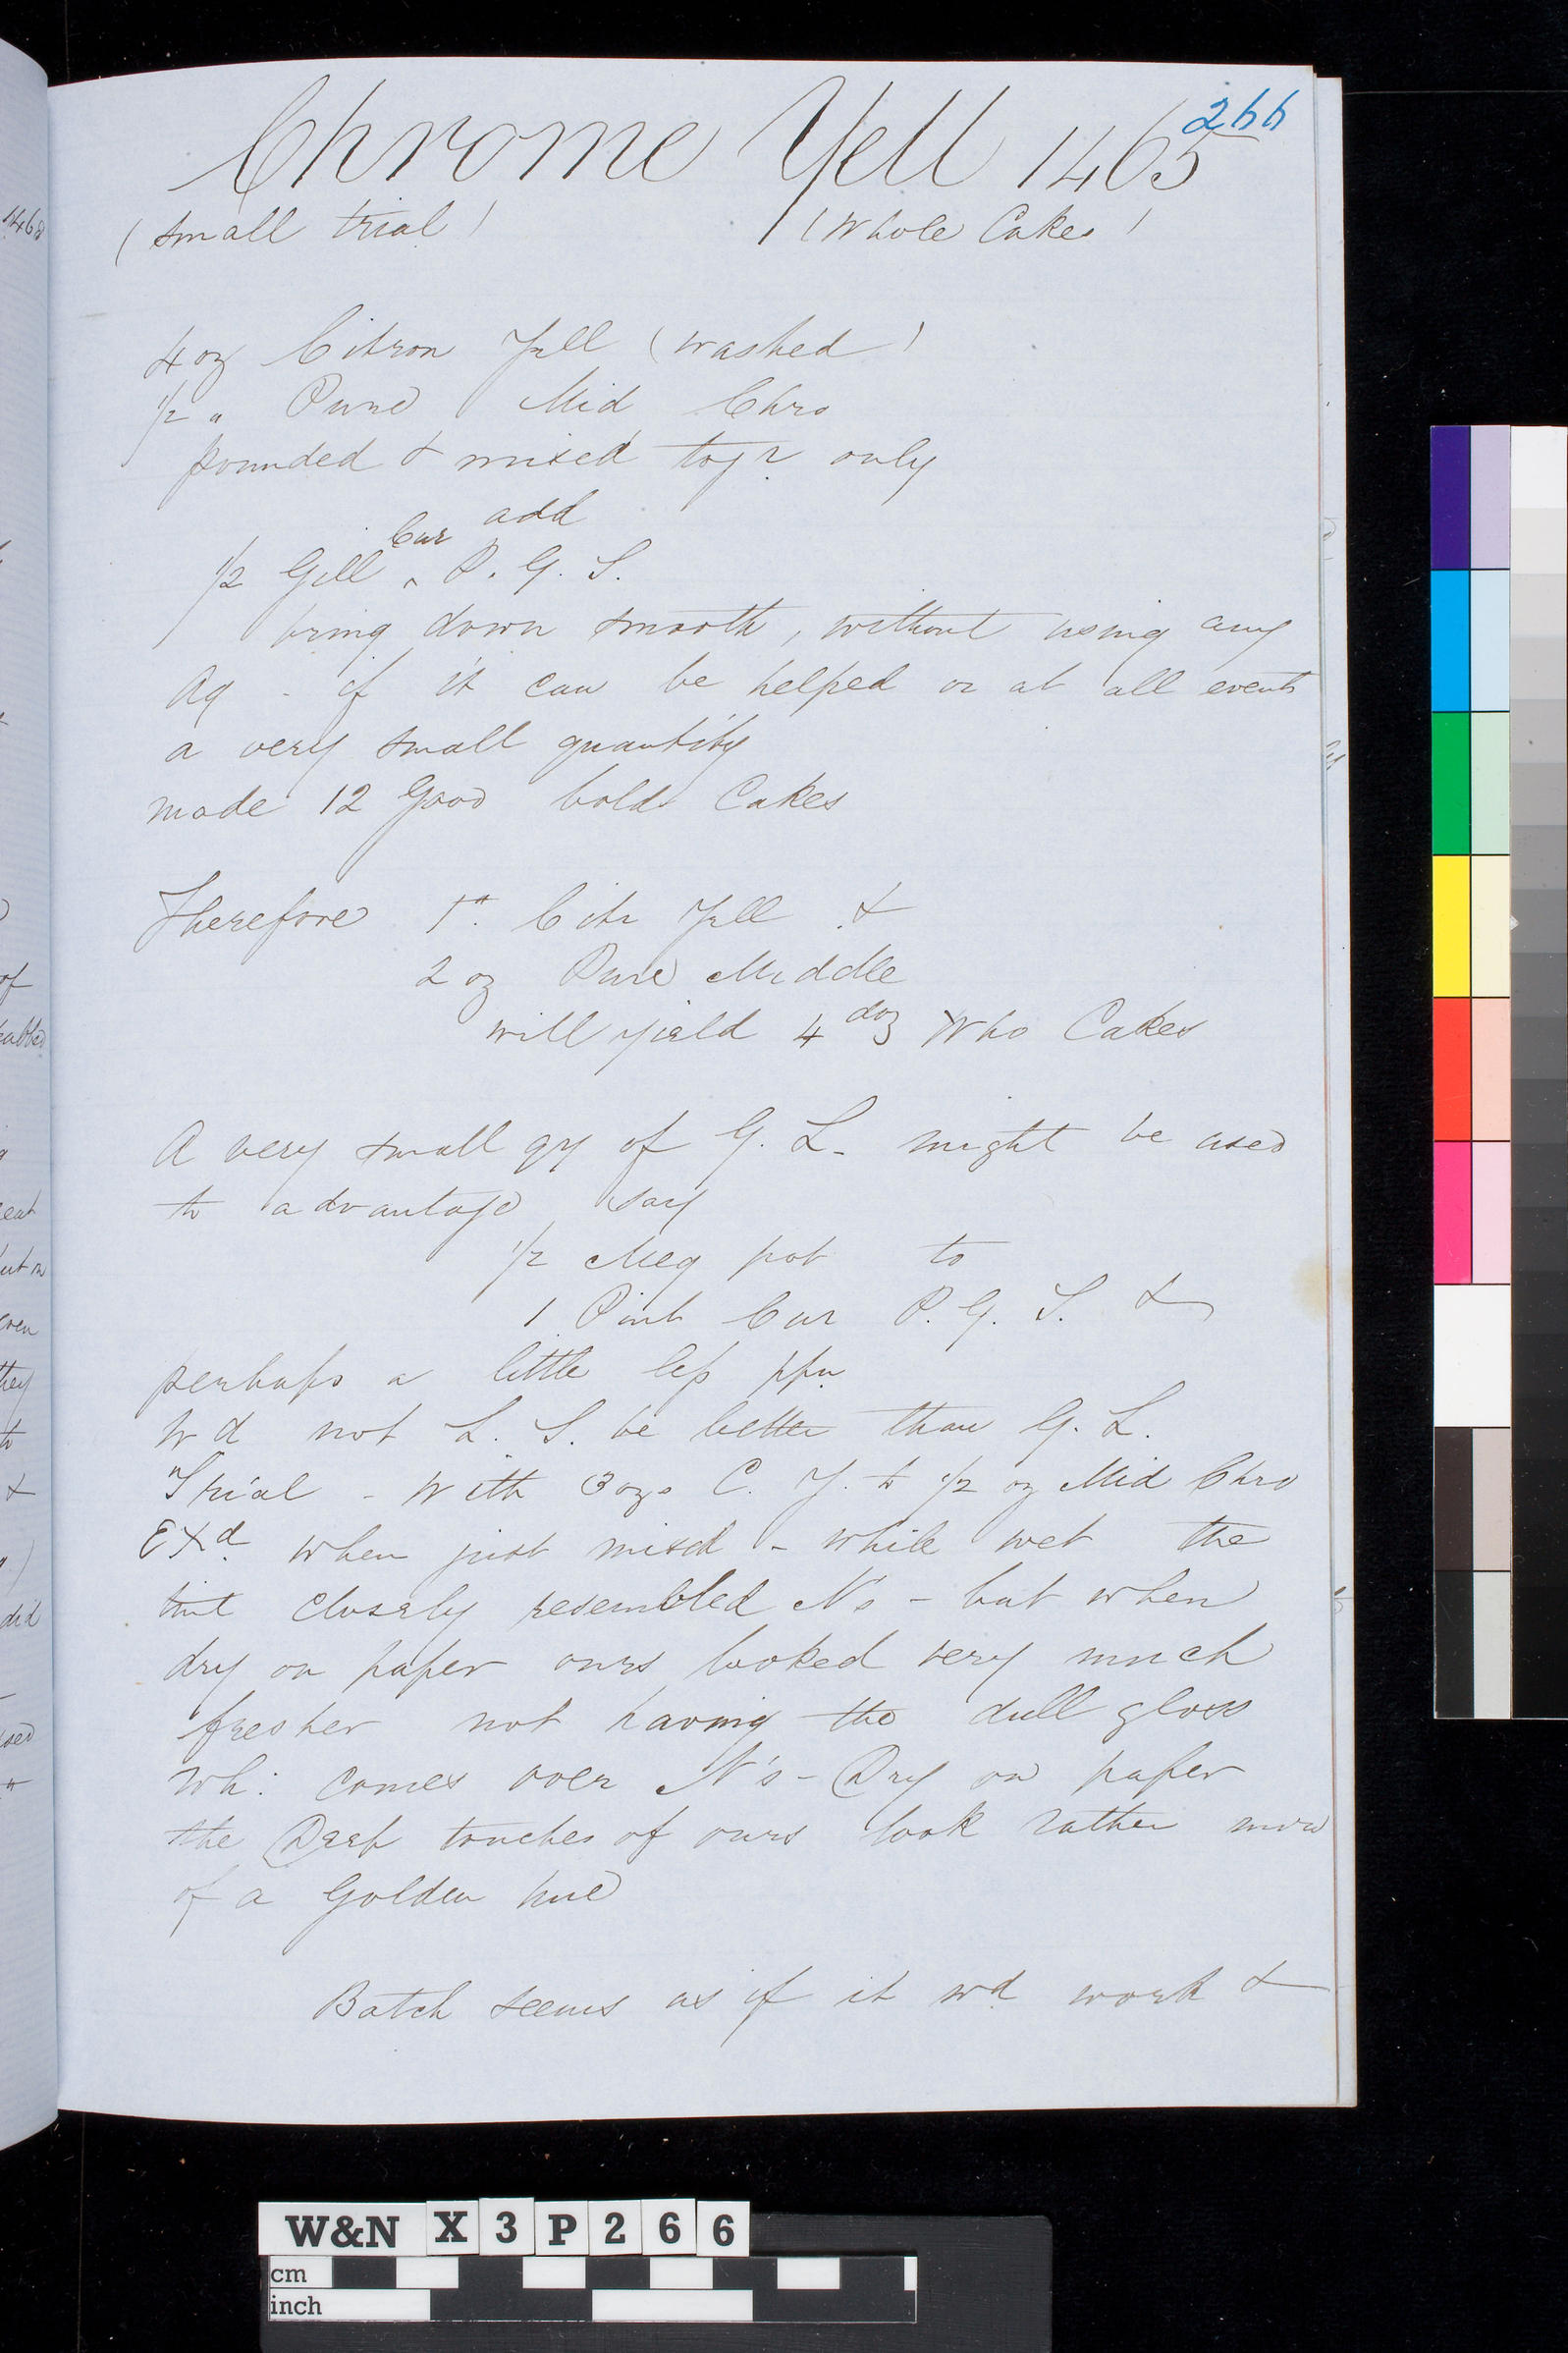 266
Chrome Yell 1465
(small trial) (Whole Cakes)
4 oz Citron Yell (washed)
1/2 " Pure Mid Chro
pounded & mixed togr only
add
1/2 Gill ^Car P. G. S.
bring down smooth, without using any
Aq - if it can be helped or at all events
a very small quantity
made 12 Good bold Cakes
Therefore 1 Citr Yell &
2 oz Pure Middle
will yield 4 doz Who Cakes
A very small qy of G. L. might be used
to advantage say
1/2 Meg pot to
1 Pint Car P. G. S. &
perhaps a little less
Wd not L. S. be better than G. L.
Trial - With 3 ozs C. Y. to 1/2 oz Mid Chro
EXd when just mixd - while wet the
tint closely resembled N's - but when
dry on paper ours looked very much
fresher not having the dull gloss
wh: comes over N's - Dry on paper
the Deep touches of ours look rather more
of a Golden hue
Batch seems as if it wd work &
W&N X 3 P 2 6 6
cm
inch